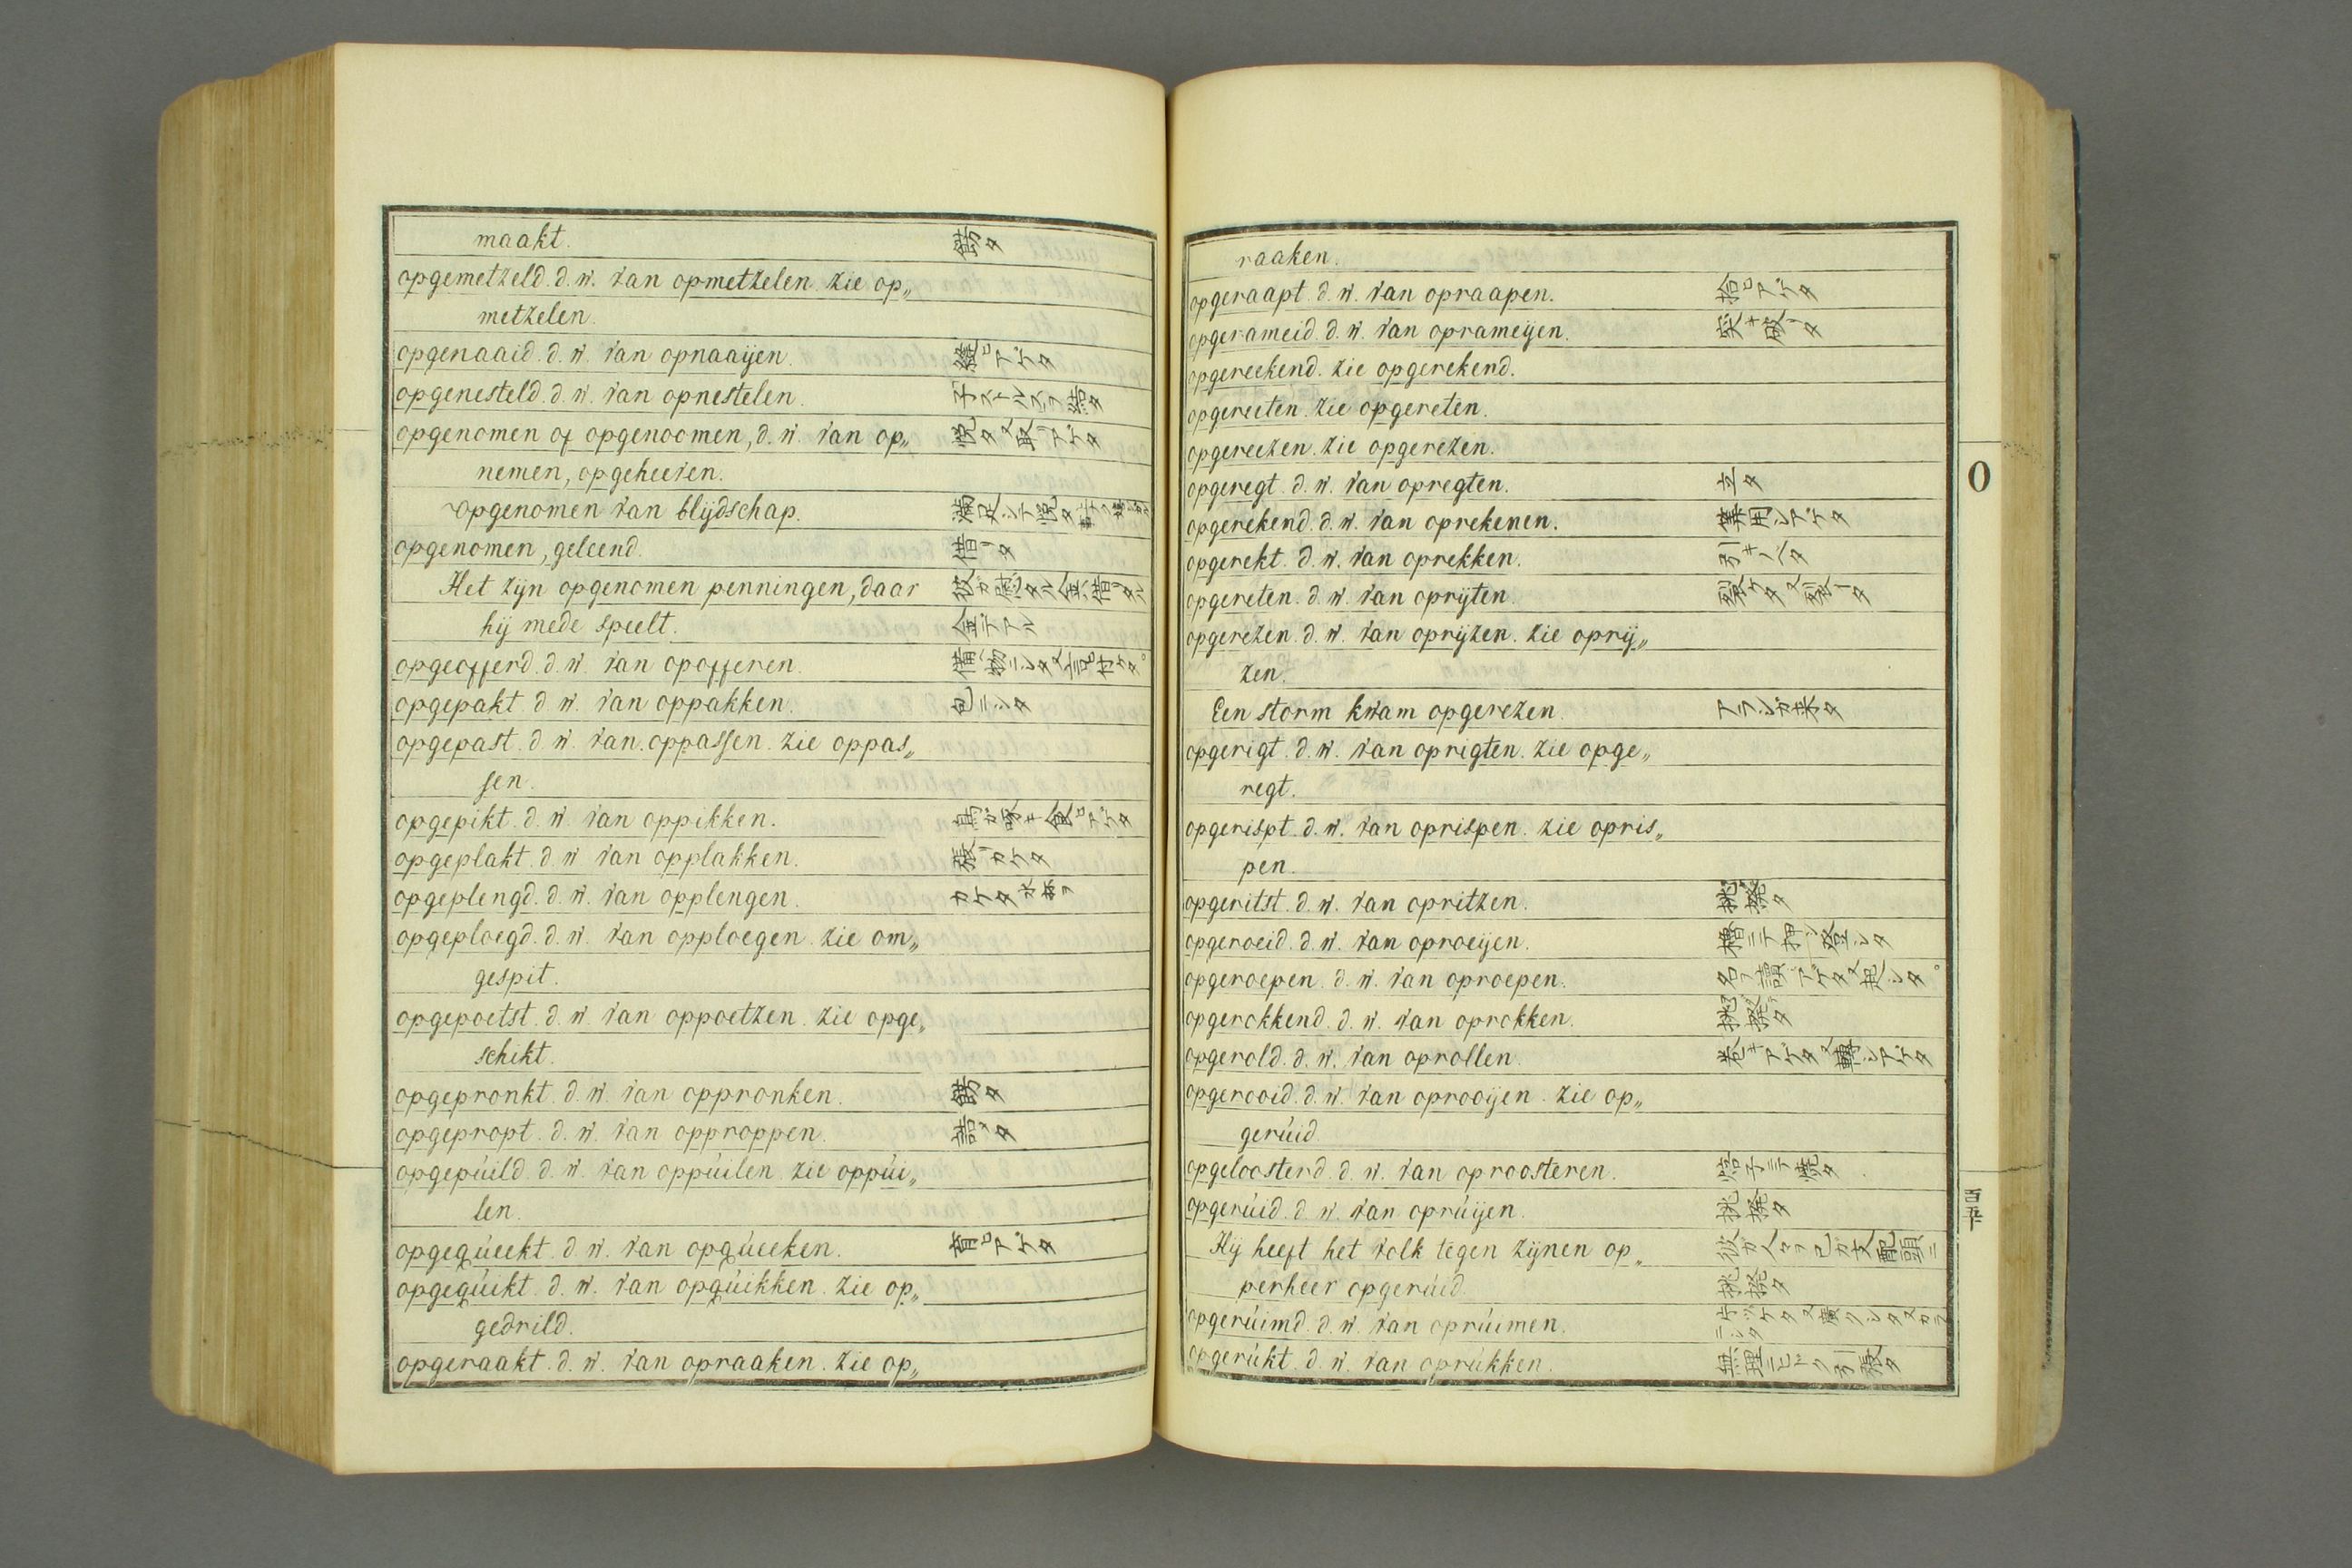 maakt. 餝タ
opgemetzeld. d. w. van opmetzelen. zie op„
metzelen.
opgenaaid. d. w. van opnaaijen. 縫ヒアゲタ
opgenesteld. d. w. van opnestelen.
opgenomen of opgenoomen, d. w. van op„ 悦タ又取アゲタ
nemen, opgeheeven.
opgenomen van blijdschap. 満足シテ悦タ
opgenomen, geleend. 借リタ
Het zijn opgenomen penningen, daar
hij mede speelt. 金デアル
opgeofferd. d. w. van opofferen.
opgepakt d w. van oppakken. 包ニシタ
opgepast. d. w. van. oppassen. zie oppas„
sen.
opgepikt. d. w. van oppikken. 鳥ガ啄キ食ヒアゲタ
opgeplakt. d. w van opplakken. 張リカケタ
opgeplengd. d. w. van opplengen. カケタ水抔ヲ
opgeploegd. d. w. van opploegen. zie om„
gespit.
opgepoetst. d. w van oppoetzen. zie opge„
schikt.
opgepronkt. d. w. van oppronken. 餝タ
opgepropt. d. w. van opproppen.
opgepúild. d. w. van oppúilen. zie oppúi„
len.
opgeqúeekt. d. w. van opqúeeken. 育ヒアゲタ
opgeqúikt. d. w. van opqúikken. zie op„
gedrild.
opgeraakt. d. w. van opraaken. zie op„
raaken.
opgeraapt. d. w. van opraapen. 拾ヒアゲタ
opgerameid. d. w. van oprameijen. 突キ破リタ
opgereekend. zie opgerekend.
opgereeten. zie opgereten.
opgereezen. zie opgerezen.
opgeregt. d. w. van opregten. 立タ
opgerekend. d. w. van oprekenen. 算用シアゲタ
opgerekt. d. w. van oprekken. 引キノベタ
opgereten. d. w. van oprijten. 裂ケタ又裂ータ
opgerezen. d. w. van oprijzen. zie oprij„
zen.
Een storm kwam opgerezen. アラシガ来タ
opgerigt. d. w. van oprigten. zie opge„
regt.
opgerispt. d. w. van oprispen. zie opris„
pen.
opgeritst. d. w. van opritzen. 挑撥タ
opgeroeid. d. w. van oproeijen. 櫓ニテ押シ登シタ
opgeroepen. d. w. van oproepen.
opgerokkend. d. w. van oprokken. 挑撥タ
opgerold. d. w. van oprollen. 巻キアゲタ又轉シアゲタ
opgerooid. d. w. van oprooijen. zie op„
gerúid
opgeloosterd. d. w. van oproosteren. 焙子ニテ焼タ
opgerúid. d. w. van oprúijen. 挑撥タ
Hij heeft het volk tegen zijnen op„ 彼ガ人々ヲ己ガ支配頭ニ
perheer opgerúid. 挑撥タ
opgerúimd. d. w. van oprúimen.
opgerúkt. d. w. van oprúkken. 無理ニヒドク引張タ
O